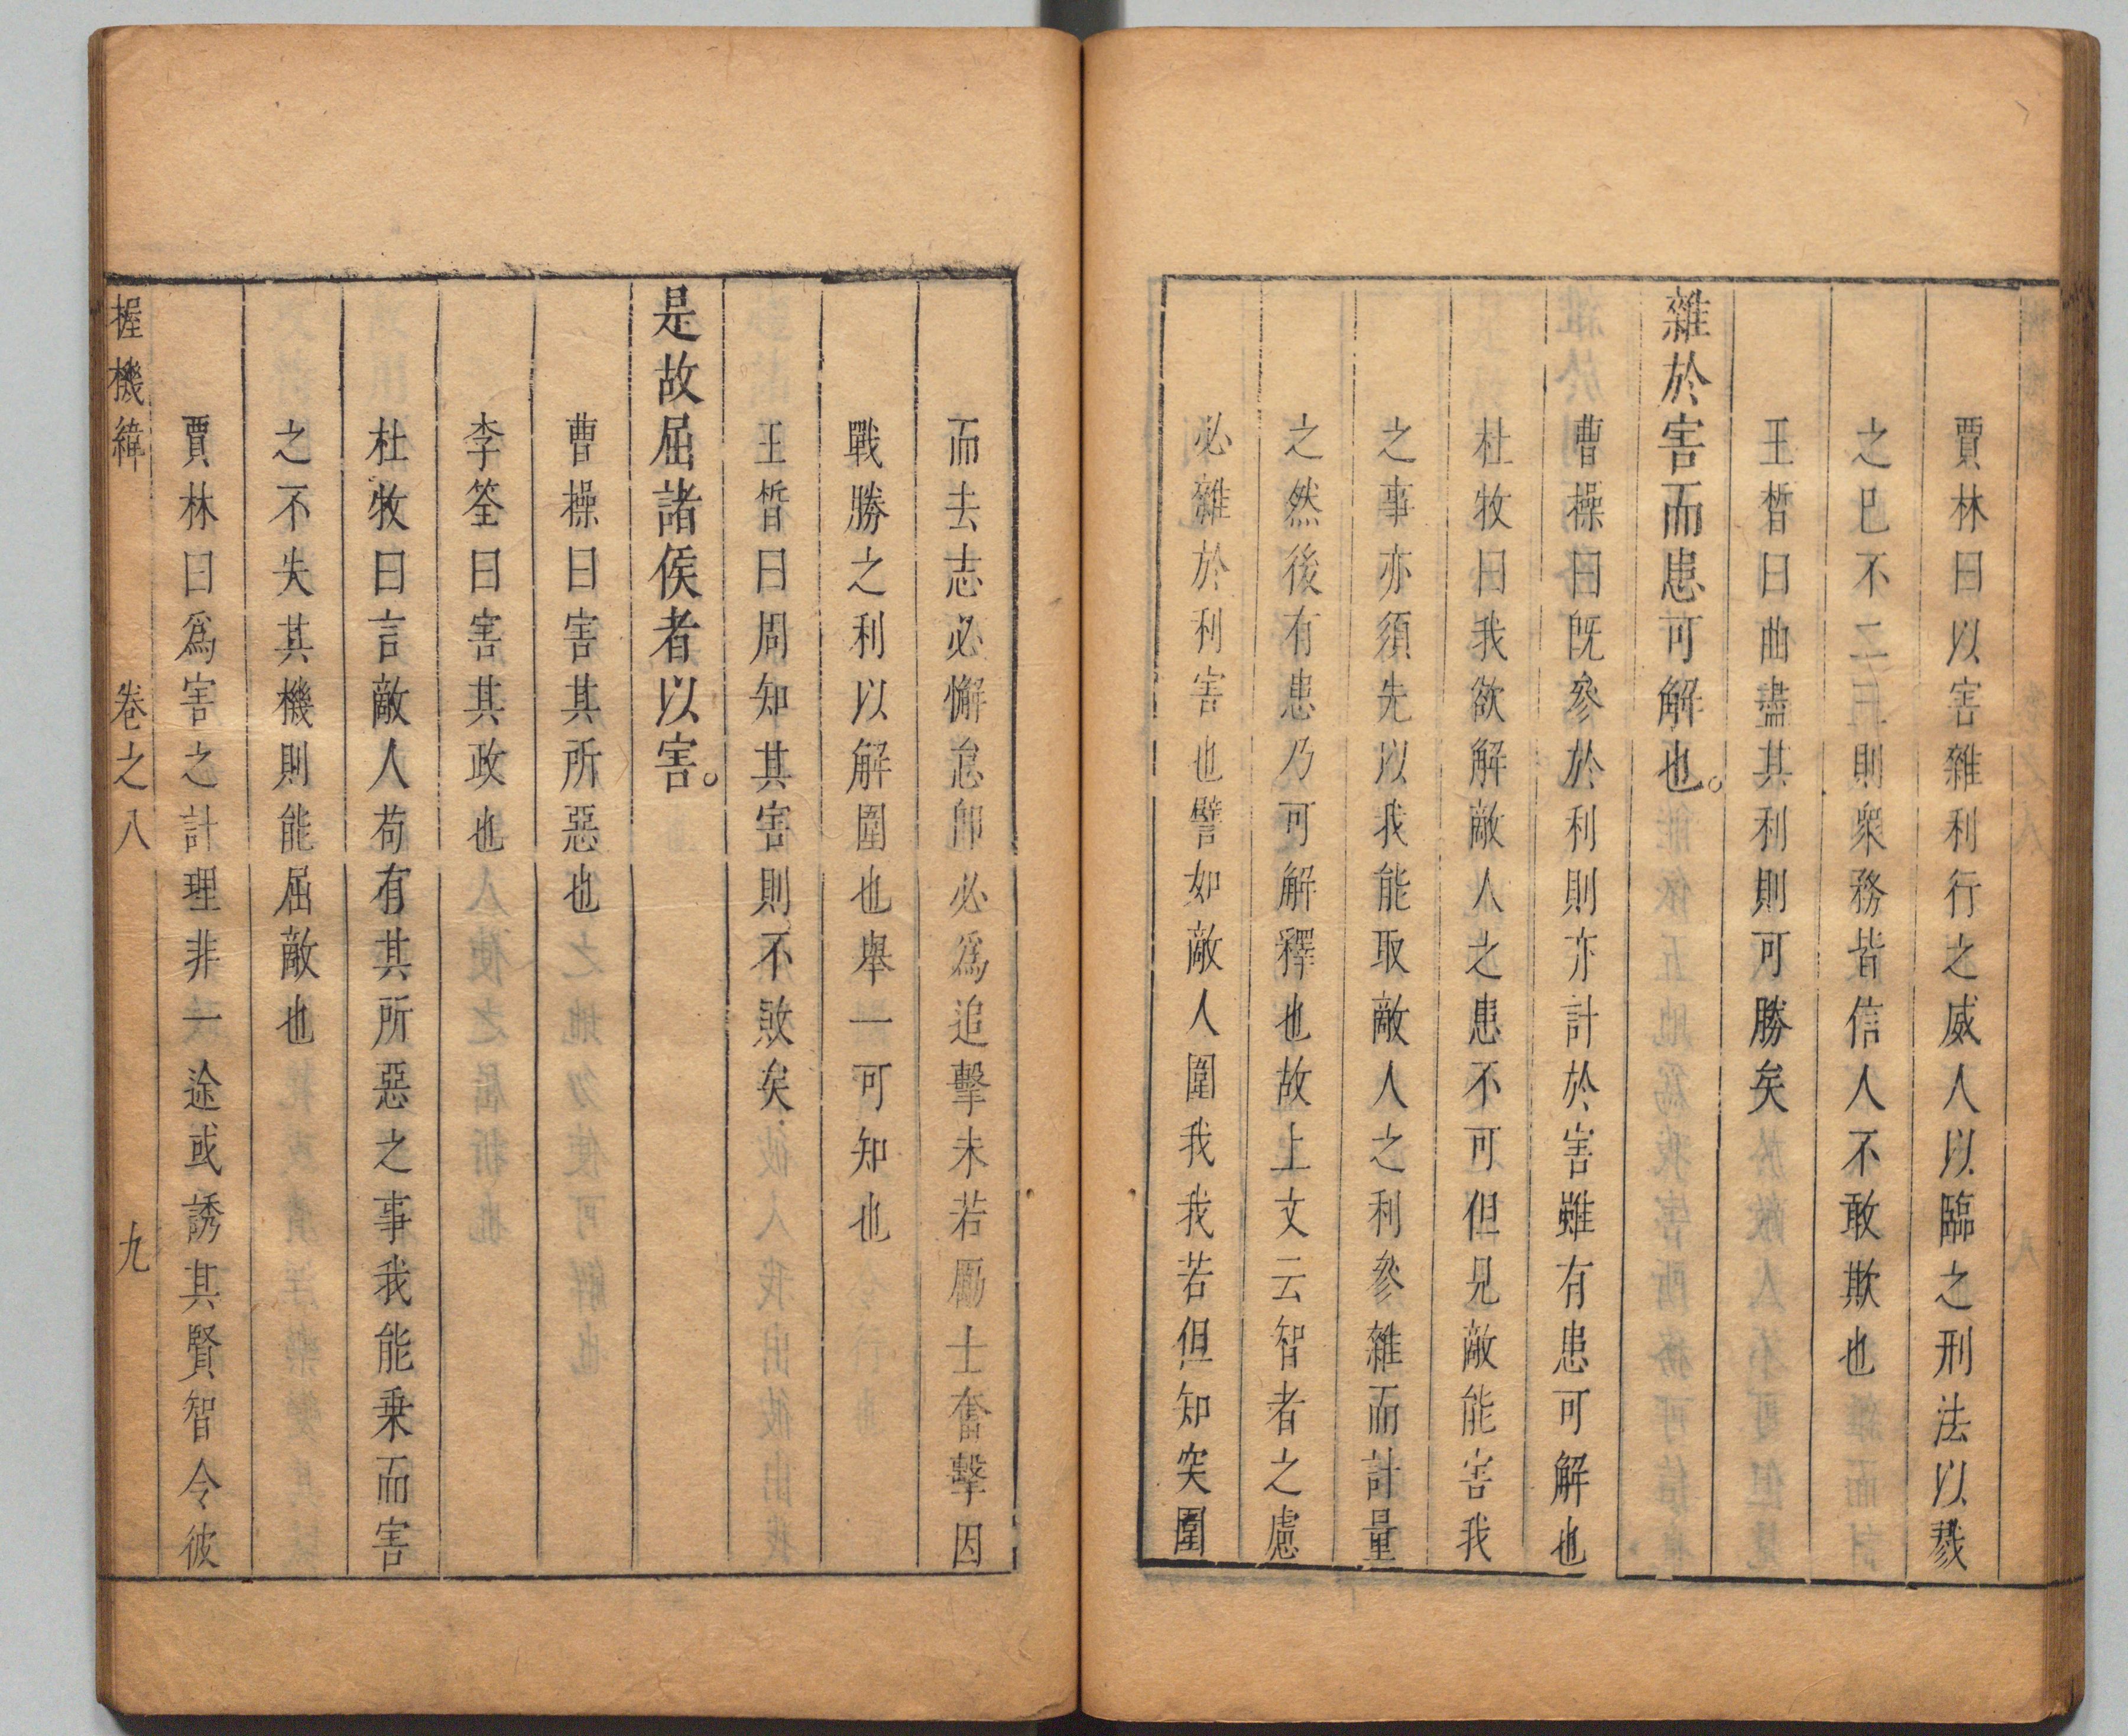 賈林曰以害雜利行之威人以臨之刑法以戮
之巳不二三則衆務皆信人不敢欺也
王晳曰曲盡其利則可勝矣
雜於害而患可解也。
曹操曰旣參於利則亦計於害雖有患可解也
杜牧曰我欲解敵人之患不可但見敵能害我
之事亦須先以我能取敵人之利參雜而計量
之然後有患乃可解釋也故上文云智者之慮
必雜於利害也譬如敵人圍我我若但知突圍
而去志必懈怠卽必爲追擊未若厲士奮擊因
戰勝之利以解圍也舉一可知也
王晳曰周知其害則不敗矣
是故屈諸侯者以害。
曹操曰害其所惡也
李筌曰害其政也
杜牧曰言敵人苟有其所惡之事我能乗而害
之不失其機則能屈敵也
賈林曰爲害之計理非一途或誘其賢智令彼
握機緯 卷之八 九